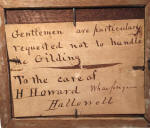 Gentlemen are particularly
requested not to handle
the Gilding
To the care of
H Howard Wharfinger
Hallowell